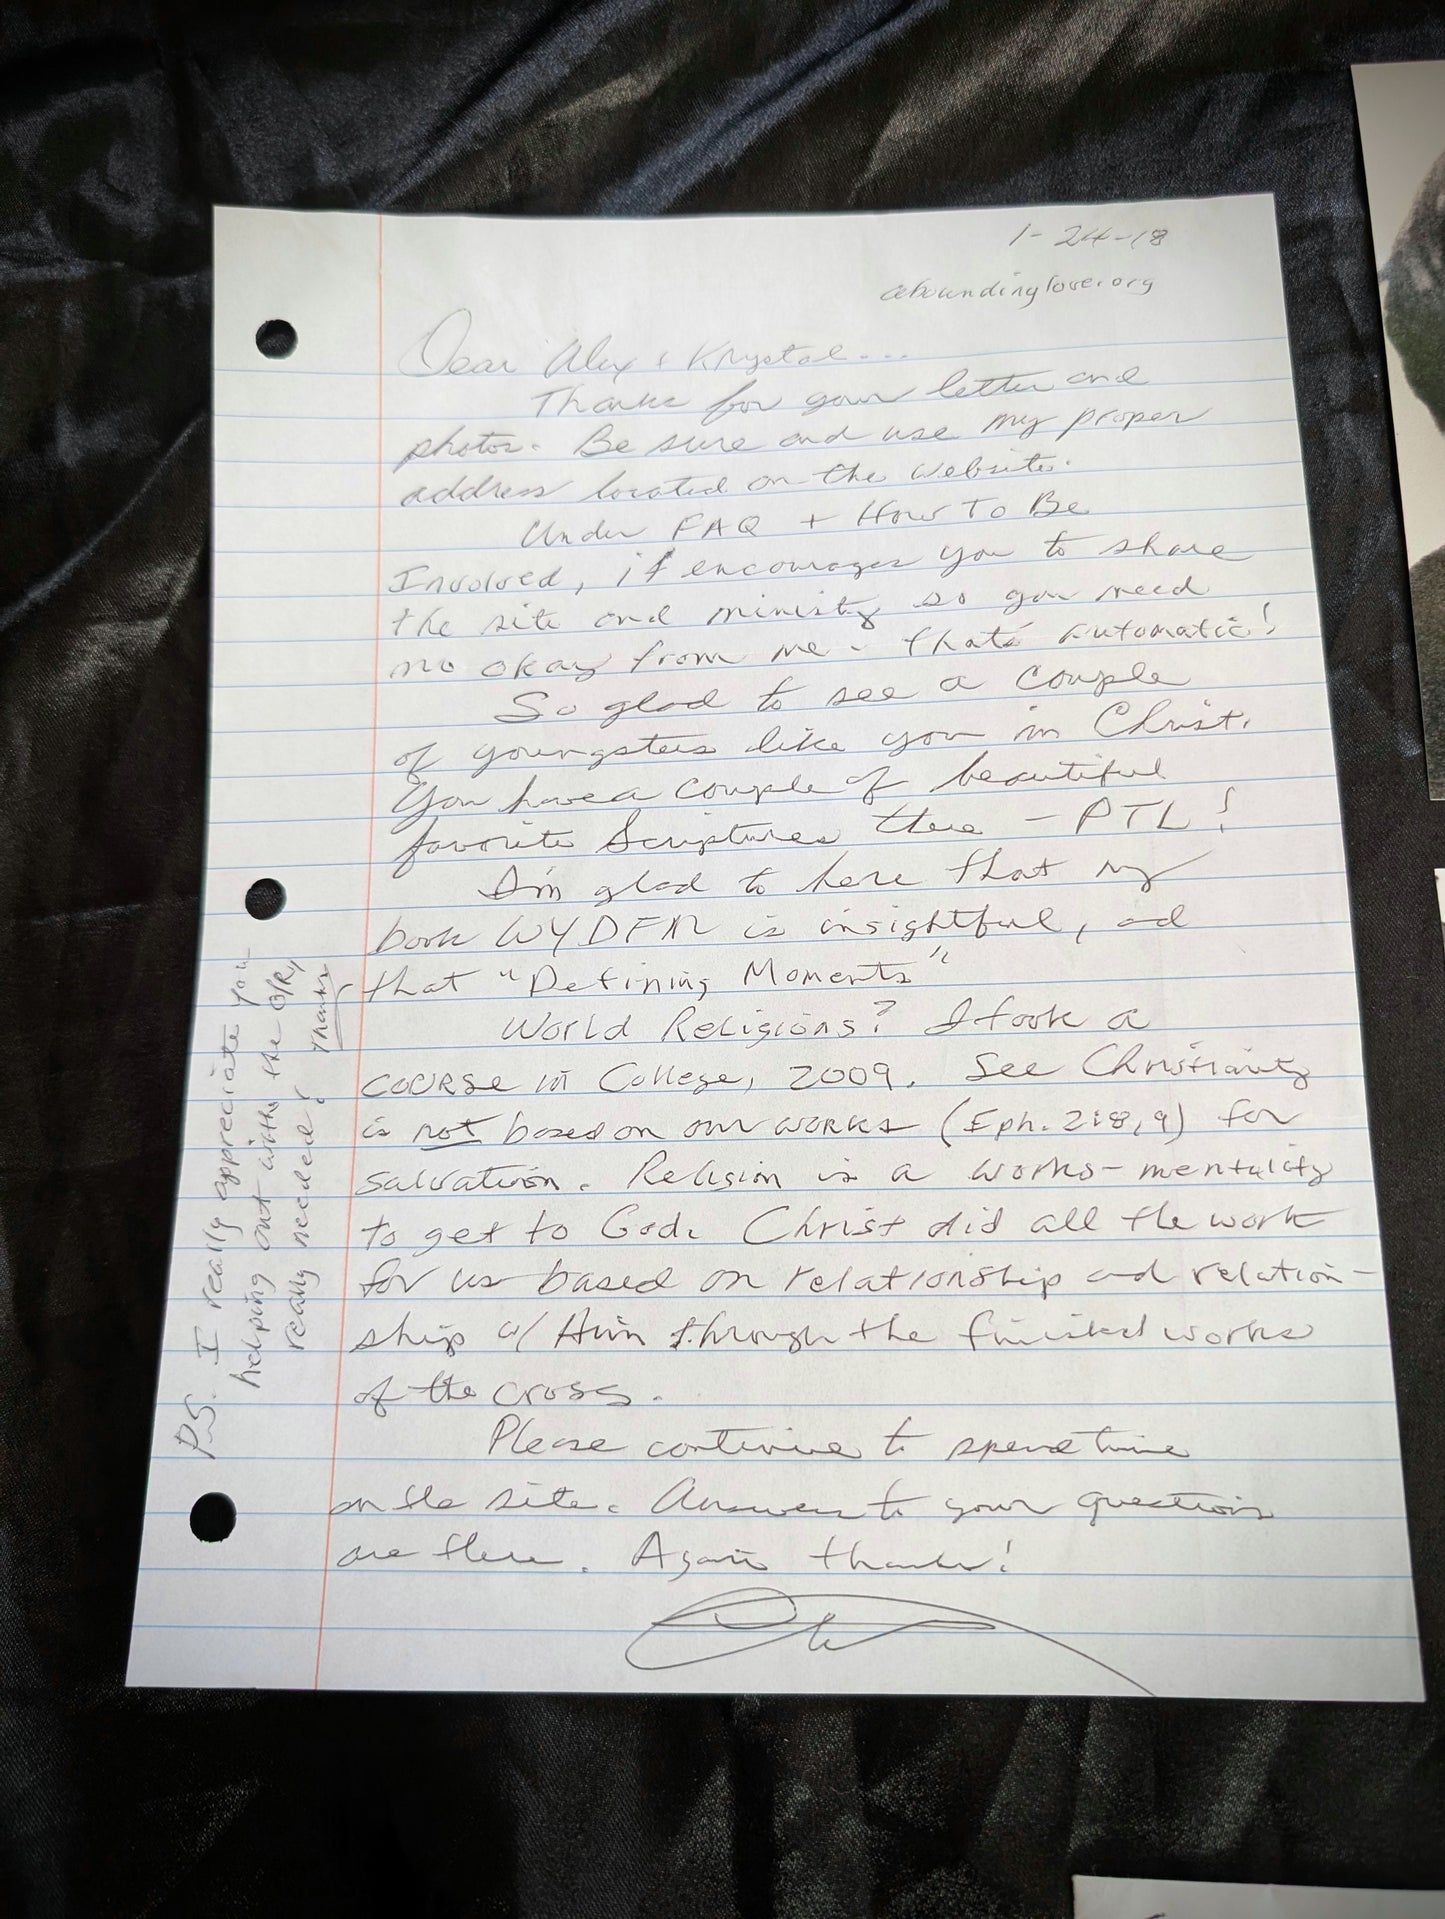 1-24-18
aboundinglove.org
Dear Alex & Krystal...
Thanks for your letter and
photos. Be sure and use my proper
address located on the website.
Under FAQ + How To Be
Involved, it encourages you to share
the site and ministry so you need
no okay from me - that's automatic!
So glad to see a couple
of youngsters like you in Christ.
You have a couple of beautiful
favorite Scriptures there - PTL!
I'm glad to here that my
book WYDFM is insightful, ad
that "Defining Moments"
World Religions? I took a
course in College, 2009. See Christianity
is not based on our works (Eph. 2:8,9) for
salvation. Religion is a works-mentality
to get to God. Christ did all the work
for us based on relationship and relation-
ship w/ Him through the finished works
of the cross.
Please continue to spend time
on the site. Answers to your questions
are there. Again thanks!
P.S. I really appreciate you
helping out with the
really needed! Thanks